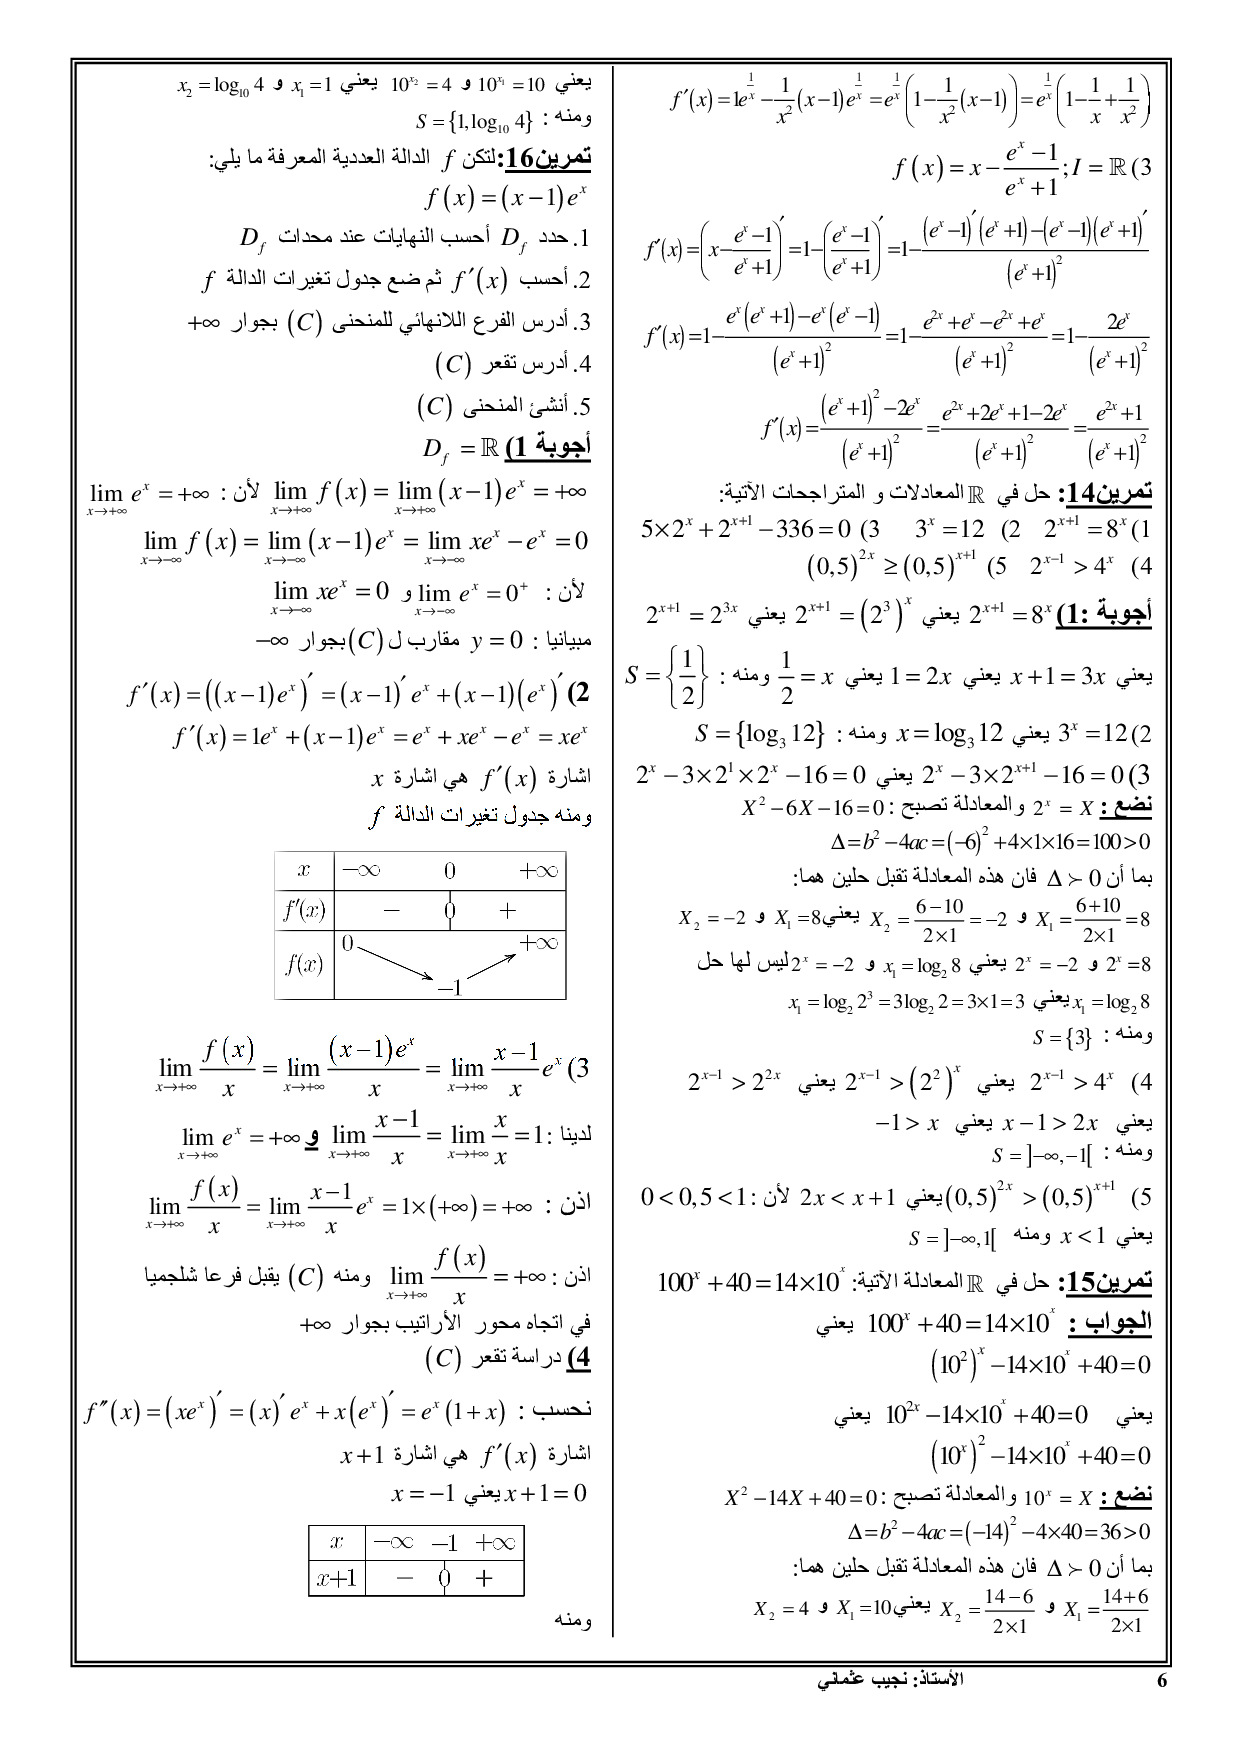 f′(x) = 1e^{1/x} − 1/x² (x−1) e^{1/x} = e^{1/x} (1 − 1/x² (x−1)) = e^{1/x} (1 − 1/x + 1/x²)
3) f(x) = x − (e^x − 1)/(e^x + 1) ; I = ℝ
f′(x) = (x − (e^x−1)/(e^x+1))′ = 1 − ((e^x−1)/(e^x+1))′ = 1 − ((e^x−1)′(e^x+1) − (e^x−1)(e^x+1)′)/(e^x+1)²
f′(x) = 1 − (e^x(e^x+1) − e^x(e^x−1))/(e^x+1)² = 1 − (e^{2x} + e^x − e^{2x} + e^x)/(e^x+1)² = 1 − 2e^x/(e^x+1)²
f′(x) = ((e^x+1)² − 2e^x)/(e^x+1)² = (e^{2x} + 2e^x + 1 − 2e^x)/(e^x+1)² = (e^{2x}+1)/(e^x+1)²
تمرين14: حل في ℝ المعادلات و المتراجحات الآتية:
1) 2^{x+1} = 8^x 2) 3^x = 12 3) 5×2^x + 2^{x+1} − 336 = 0
4) 2^{x−1} > 4^x 5) (0,5)^{2x} ≥ (0,5)^{x+1}
أجوبة :1) 2^{x+1} = 8^x يعني 2^{x+1} = (2³)^x يعني 2^{x+1} = 2^{3x}
يعني x+1 = 3x يعني 1 = 2x يعني 1/2 = x ومنه : S = {1/2}
2) 3^x = 12 يعني x = log₃ 12 ومنه : S = {log₃ 12}
3) 2^x − 3×2^{x+1} − 16 = 0 يعني 2^x − 3×2¹×2^x − 16 = 0
نضع : 2^x = X والمعادلة تصبح : X² − 6X − 16 = 0
Δ = b² − 4ac = (−6)² + 4×1×16 = 100 > 0
بما أن Δ ≻ 0 فان هذه المعادلة تقبل حلين هما:
X₁ = (6+10)/(2×1) = 8 و X₂ = (6−10)/(2×1) = −2 يعني X₁ = 8 و X₂ = −2
2^x = 8 و 2^x = −2 يعني x₁ = log₂ 8 و 2^x = −2 ليس لها حل
x₁ = log₂ 8 يعني x₁ = log₂ 2³ = 3log₂ 2 = 3×1 = 3
ومنه : S = {3}
4) 2^{x−1} > 4^x يعني 2^{x−1} > (2²)^x يعني 2^{x−1} > 2^{2x}
يعني x−1 > 2x يعني −1 > x
ومنه : S = ]−∞,−1[
5) (0,5)^{2x} > (0,5)^{x+1} يعني 2x < x+1 لأن : 0 < 0,5 < 1
يعني x < 1 ومنه S = ]−∞,1[
تمرين15: حل في ℝ المعادلة الآتية: 100^x + 40 = 14×10^x
الجواب : 100^x + 40 = 14×10^x يعني
(10²)^x − 14×10^x + 40 = 0
يعني 10^{2x} − 14×10^x + 40 = 0 يعني
(10^x)² − 14×10^x + 40 = 0
نضع : 10^x = X والمعادلة تصبح : X² − 14X + 40 = 0
Δ = b² − 4ac = (−14)² − 4×40 = 36 > 0
بما أن Δ ≻ 0 فان هذه المعادلة تقبل حلين هما:
X₁ = (14+6)/(2×1) و X₂ = (14−6)/(2×1) يعني X₁ = 10 و X₂ = 4
يعني 10^{x₁} = 10 و 10^{x₂} = 4 يعني x₁ = 1 و x₂ = log₁₀ 4
ومنه : S = {1, log₁₀ 4}
تمرين16:لتكن f الدالة العددية المعرفة ما يلي:
f(x) = (x−1)e^x
1. حدد D_f أحسب النهايات عند محدات D_f
2. أحسب f′(x) ثم ضع جدول تغيرات الدالة f
3. أدرس الفرع اللانهائي للمنحنى (C) بجوار +∞
4. أدرس تقعر (C)
5. أنشئ المنحنى (C)
أجوبة 1) D_f = ℝ
lim_{x→+∞} f(x) = lim_{x→+∞} (x−1)e^x = +∞ لأن : lim_{x→+∞} e^x = +∞
lim_{x→−∞} f(x) = lim_{x→−∞} (x−1)e^x = lim_{x→−∞} xe^x − e^x = 0
لأن : lim_{x→−∞} e^x = 0⁺ و lim_{x→−∞} xe^x = 0
مبيانيا : y = 0 مقارب ل (C) بجوار −∞
2) f′(x) = ((x−1)e^x)′ = (x−1)′e^x + (x−1)(e^x)′
f′(x) = 1e^x + (x−1)e^x = e^x + xe^x − e^x = xe^x
اشارة f′(x) هي اشارة x
ومنه جدول تغيرات الدالة f
x −∞ 0 +∞
f′(x) − 0 +
f(x) 0 −1 +∞
3) lim_{x→+∞} f(x)/x = lim_{x→+∞} (x−1)e^x/x = lim_{x→+∞} (x−1)/x e^x
لدينا : lim_{x→+∞} (x−1)/x = lim_{x→+∞} x/x = 1 و lim_{x→+∞} e^x = +∞
اذن : lim_{x→+∞} f(x)/x = lim_{x→+∞} (x−1)/x e^x = 1×(+∞) = +∞
اذن : lim_{x→+∞} f(x)/x = +∞ ومنه (C) يقبل فرعا شلجميا
في اتجاه محور الأراتيب بجوار +∞
4) دراسة تقعر (C)
نحسب : f″(x) = (xe^x)′ = (x)′e^x + x(e^x)′ = e^x(1+x)
اشارة f′(x) هي اشارة x+1
x+1 = 0 يعني x = −1
x −∞ −1 +∞
x+1 − 0 +
ومنه
6 الأستاذ: نجيب عثماني